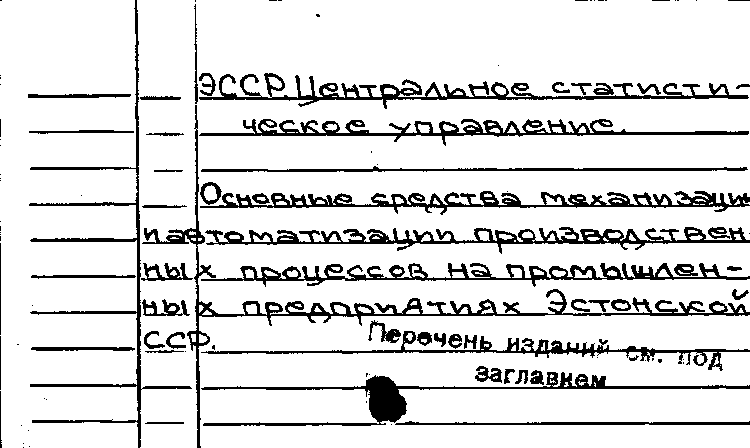 ЭССР. Центральное статисти-
ческое управление.
Основные средства механизации
и автоматизации производствен-
ных процессов на промышлен-
ных предприятиях Эстонской
ССР.
Перечень изданий см. под
заглавием